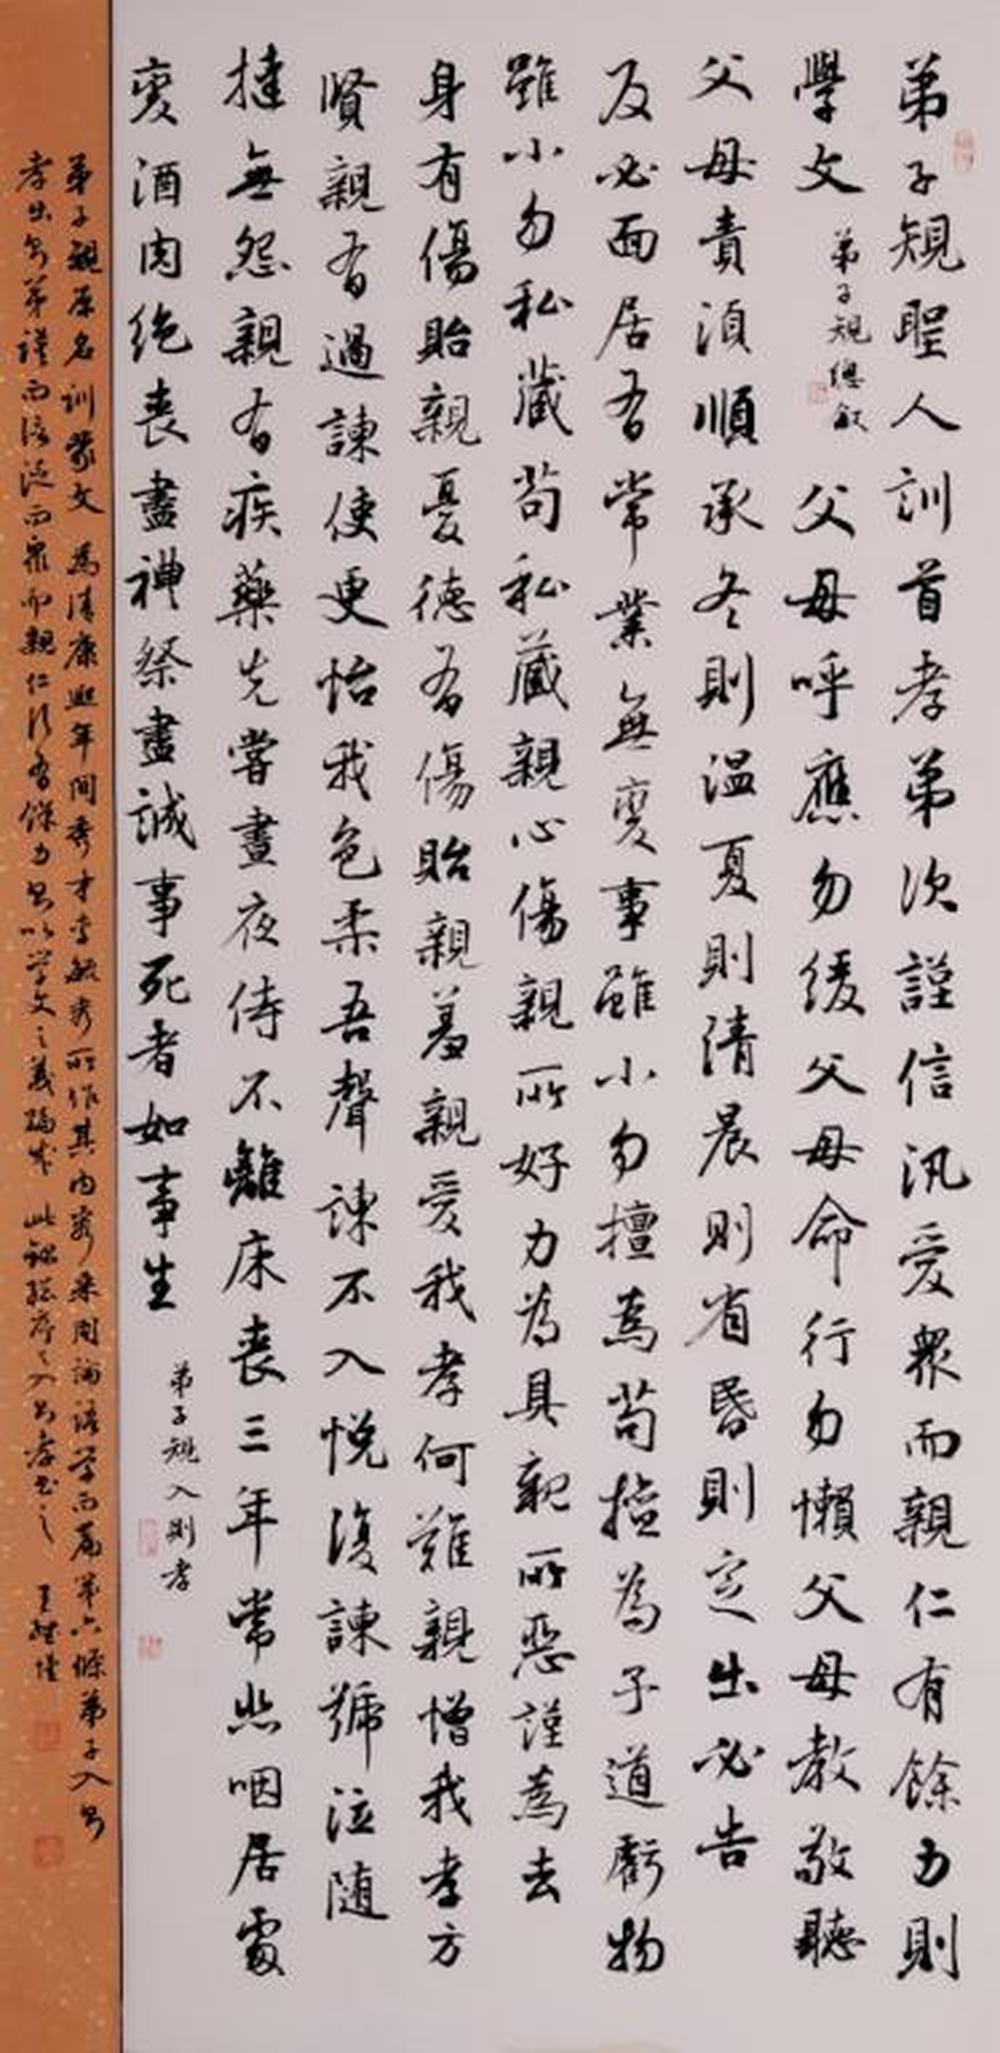 弟子規聖人訓首孝弟次謹信汎愛眾而親仁有餘力則
學文 弟子規總敘 父母呼應勿緩父母命行勿懶父母教敬聽
父母責須順承冬則温夏則清晨則省昏則定出必告
反必面居有常業無變事雖小勿擅為苟擅為子道虧物
雖小勿私藏苟私藏親心傷親所好力為具親所惡謹為去
身有傷貽親憂德有傷貽親羞親愛我孝何難親憎我孝方
賢親有過諫使更怡我色柔吾聲諫不入悅復諫號泣随
撻無怨親有疾藥先嘗晝夜侍不離床喪三年常悲咽居處
變酒肉絕喪盡禮祭盡誠事死者如事生 弟子規入則孝
弟子規原名訓蒙文 為清康熙年間秀才李毓秀所作其内容采用論語学而篇第六條弟子入則
孝出則弟謹而信泛而眾而親仁行有餘力則以学文之義編成 此録總序之入則孝書之 王